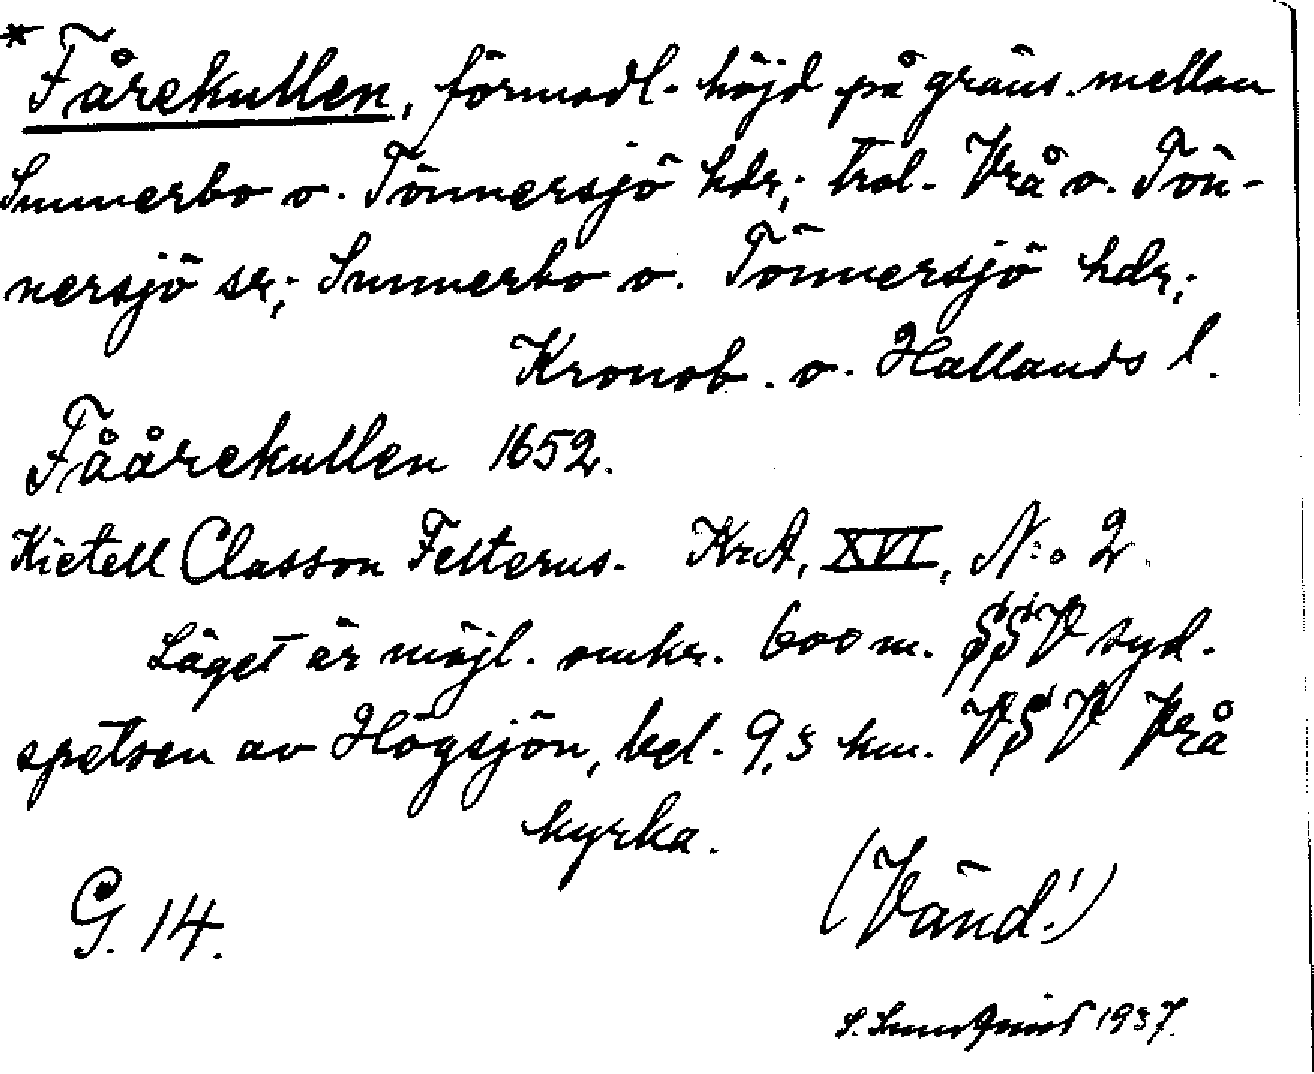 * Fårekullen, förmodl. höjd på gräns. mellan
Sunnerbo o. Tönnersjö hdr; trol. Vrå o. Tön-
nersjö sr; Sunnerbo o. Tönnersjö hdr;
Kronob. o. Hallands l.
Fåårekullen 1652.
Kietell Classon Felterus. KrA, XVI, N:o 2.
Läget är möjl. omkr. 600 m. SSV syd-
spetsen av Högsjön, bel. 9,3 km. VSV Vrå
kyrka.
G. 14. (Vänd!)
1937.